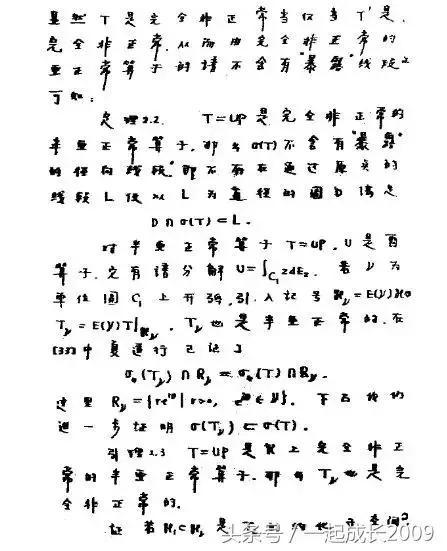 显然 T 是完全非正常当仅当 T' 是
完全非正常.从而由完全非正常的
亚正常算子的谱不会有“暴露”线段之
可知:
定理2.2. T=UP是完全非正常的
半亚正常算子,那么σ(T)不会有“暴露”
的径向线段,即不存在通过原点的
线段 L 使以 L 为直径的圆D满足
D∩σ(T)⊂L.
对半亚正常算子 T=UP,U是酉
算子,它有谱分解 U=∫_{C_1} z dE_z. 若 γ 为
单位圆 C_1 上开弧,引入记号 ℋ_γ=E(γ)ℋ
T_γ=E(γ)T|_{ℋ_γ}. T_γ 也是半亚正常的,在
[33]中夏道行已证了
σ_a(T_γ)∩R_γ=σ_a(T)∩R_γ.
这里 R_γ={re^{iθ}|r>0, e^{iθ}∈γ}. 下面我们
进一步证明 σ(T_γ)⊂σ(T).
引理2.3 T=UP是ℋ上完全非正
常的半亚正常算子,那么 T_γ 也是完
全非正常的.
证 若 ℋ_1⊂ℋ_γ 是 T_γ 的约化子空间
头条号 / 一起成长2009